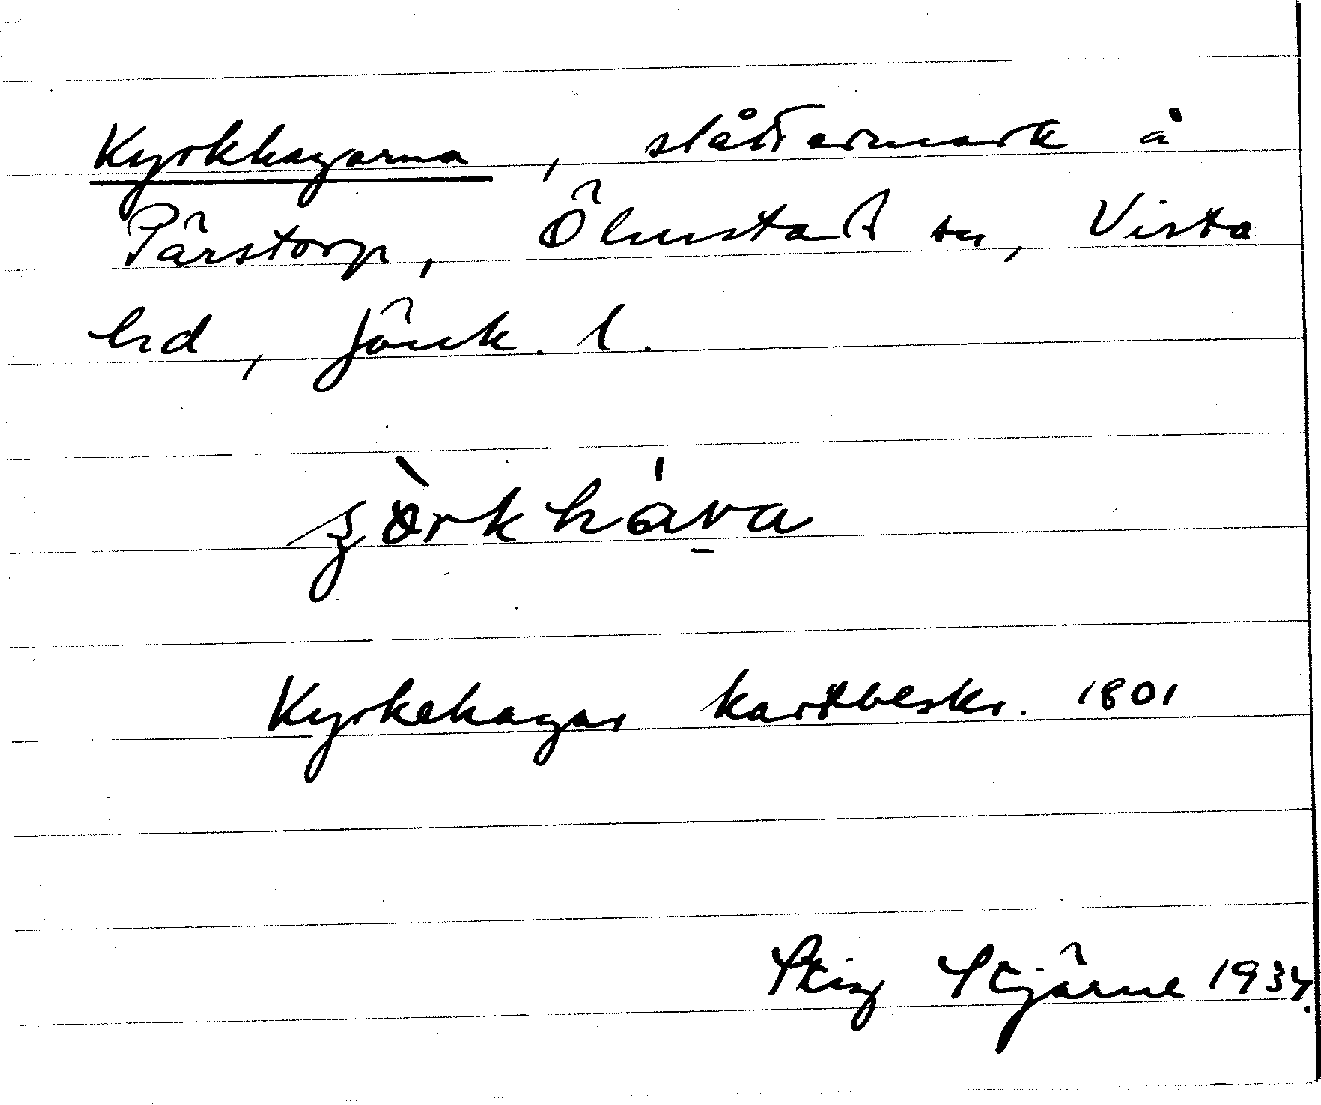 Kyrkhagarna, slåttermark å
Pärstorp, Ölmstad sn, Vista
hd, Jönk. l.
ʒòrkháva
Kyrkehagar kartbeskr. 1801
Stig Stjärne 1934.